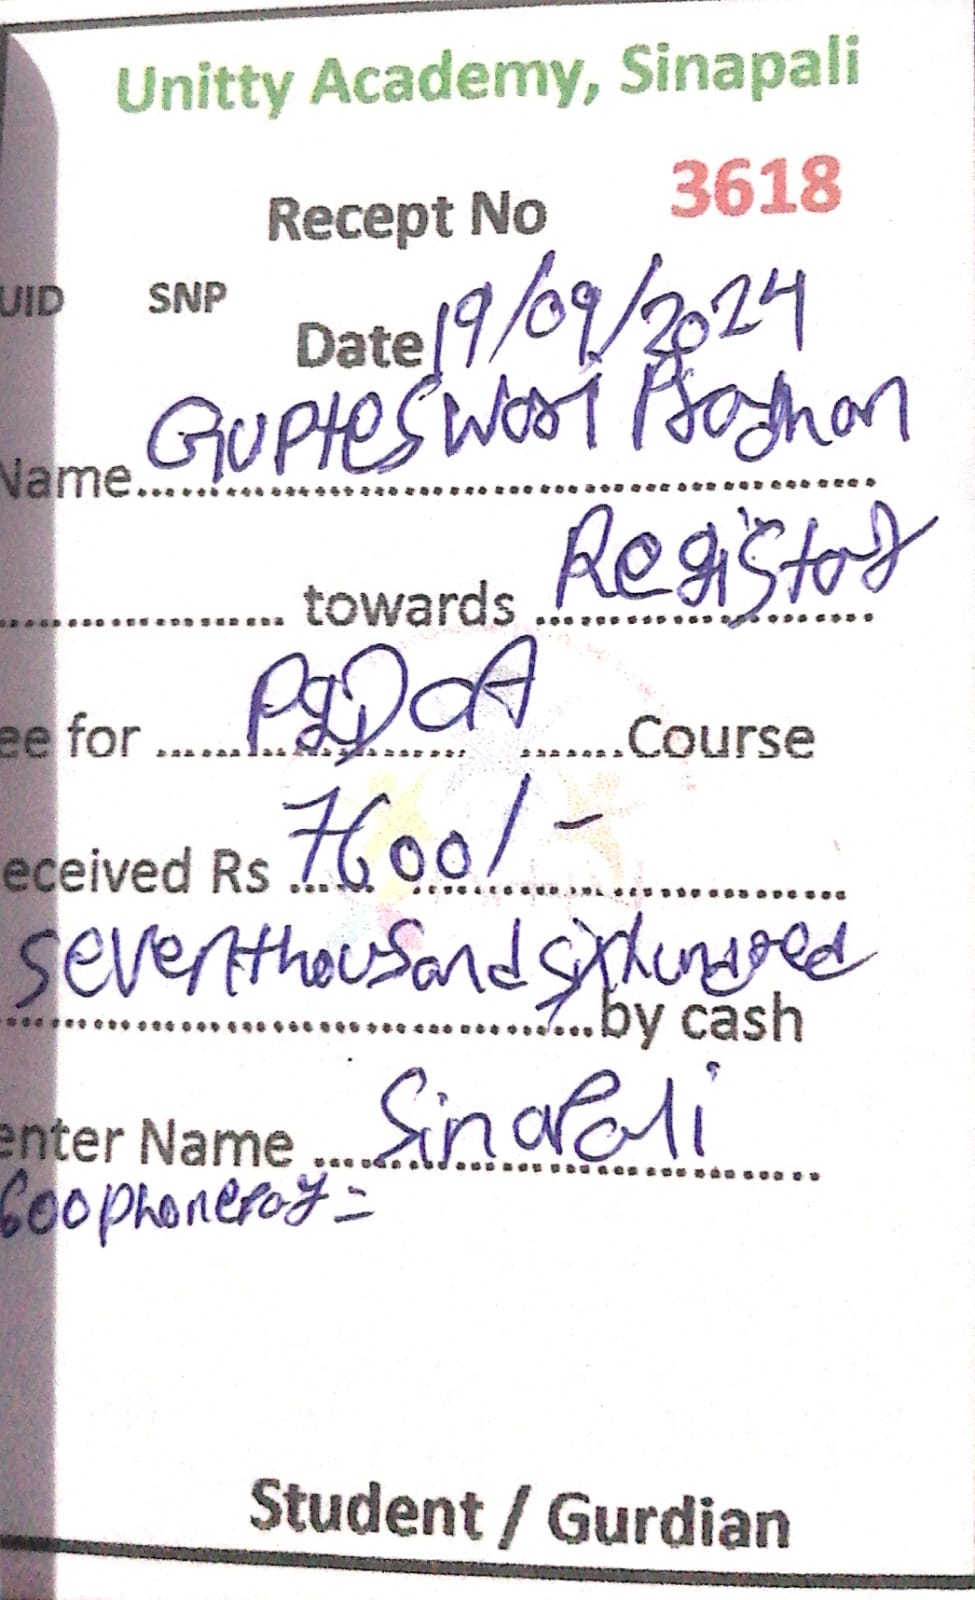 Unitty Academy, Sinapali
Recept No 3618
UID SNP
Date 19/09/2024
Name Gupteswari Pradhan
towards Registor
ee for PgDCA Course
eceived Rs 7600/-
Seventhousand sixhundred
by cash
enter Name Sinapali
600 phonepay =
Student / Gurdian